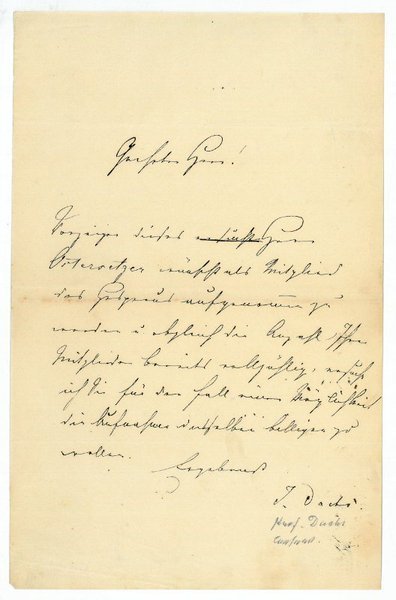 Geehrter Herr!
Vorzeiger dieses ersucht Herr
Ostersetzer wünscht als Mitglied
des Hesperus aufgenommen zu
werden u obgleich die Anzahl Ihrer
Mitglieder bereits vollzählig, ersuche
ich Sie für den Fall einer Möglichkeit
die Aufnahme desselben billigen zu
wollen.
Ergebenst
J. Dachs.
Prof. Dachs